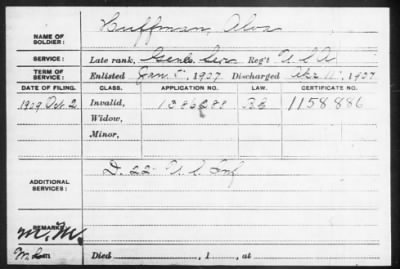 Huffman, Alva
NAME OF SOLDIER:
SERVICE: Late rank, Genl. Serv Reg't U S A
TERM OF SERVICE: Enlisted Jan. 5, 1907 Discharged 11, 1907
DATE OF FILING. CLASS. APPLICATION NO. LAW. CERTIFICATE NO.
1909 Oct. 2 Invalid, 1386288 1158886
Widow,
Minor,
ADDITIONAL SERVICES: D. 22 U. S. Inf
REMARKS:
M. M.
Died , 1 , at